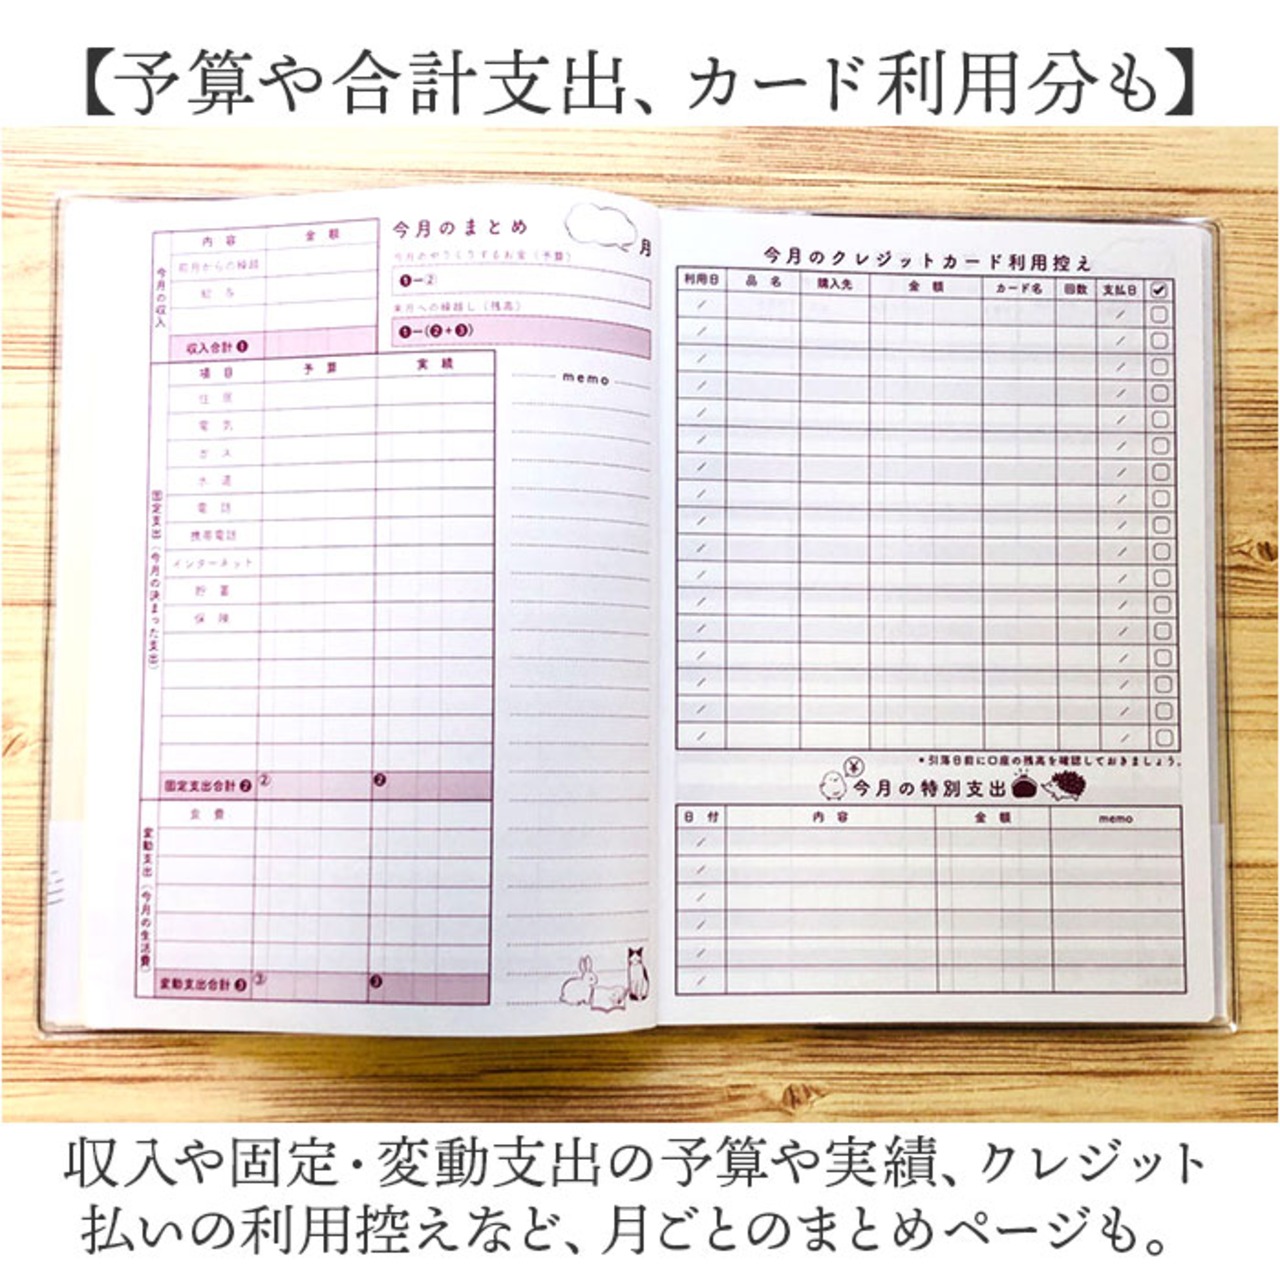 【予算や合計支出、カード利用分も】
今月のまとめ
月
今月のやりくりするお金（予算）
❶ー②
来月への繰越し（残高）
❶ー(❷+❸)
今月の収入
内容 金額
前月からの繰越
給与
収入合計❶
固定支出（今月の決まった支出）
項目 予算 実績
住居
電気
ガス
水道
電話
携帯電話
インターネット
貯蓄
保険
固定支出合計❷ ② ❷
変動支出（今月の生活費）
食費
変動支出合計❸ ③ ❸
memo
今月のクレジットカード利用控え
利用日 品名 購入先 金額 カード名 回数 支払日
*引落日前に口座の残高を確認しておきましょう。
¥
今月の特別支出
日付 内容 金額 memo
収入や固定・変動支出の予算や実績、クレジット
払いの利用控えなど、月ごとのまとめページも。